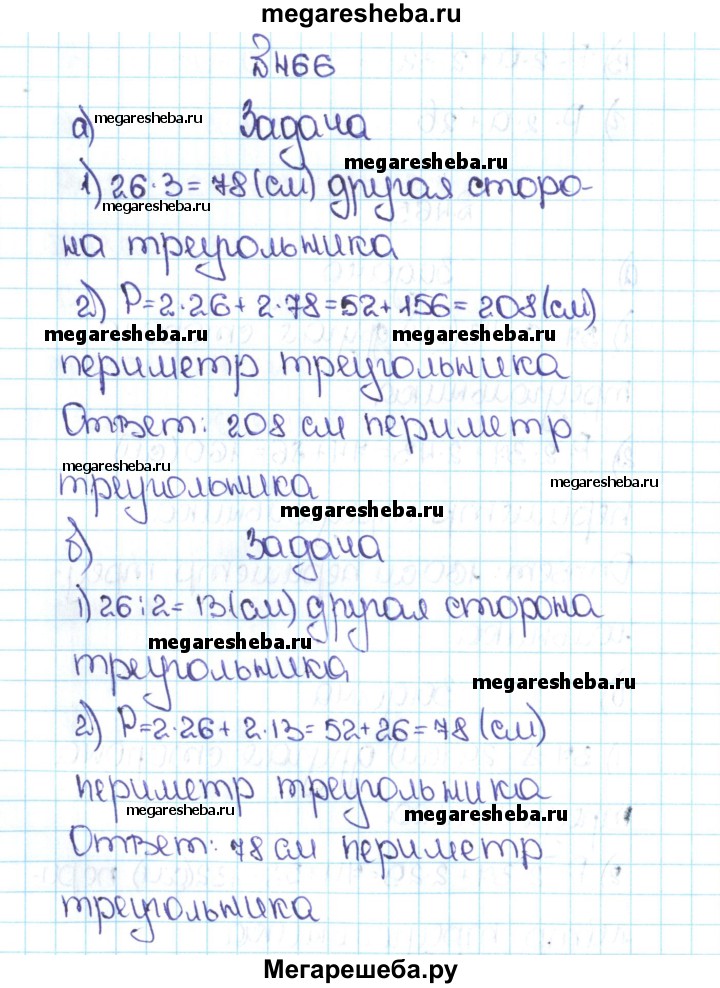 megaresheba.ru
№466
а) megaresheba.ru Задача
megaresheba.ru
1) 26·3=78(см) другая сторо-
megaresheba.ru
на треугольника
2) P=2·26+2·78=52+156=208(см)
megaresheba.ru megaresheba.ru
периметр треугольника
Ответ: 208 см периметр
megaresheba.ru megaresheba.ru
треугольника
megaresheba.ru
б) Задача
1) 26:2=13(см) другая сторона
megaresheba.ru
треугольника
megaresheba.ru
2) P=2·26+2·13=52+26=78(см)
периметр треугольника
megaresheba.ru megaresheba.ru
Ответ: 78 см периметр
треугольника
Мегарешеба.ру